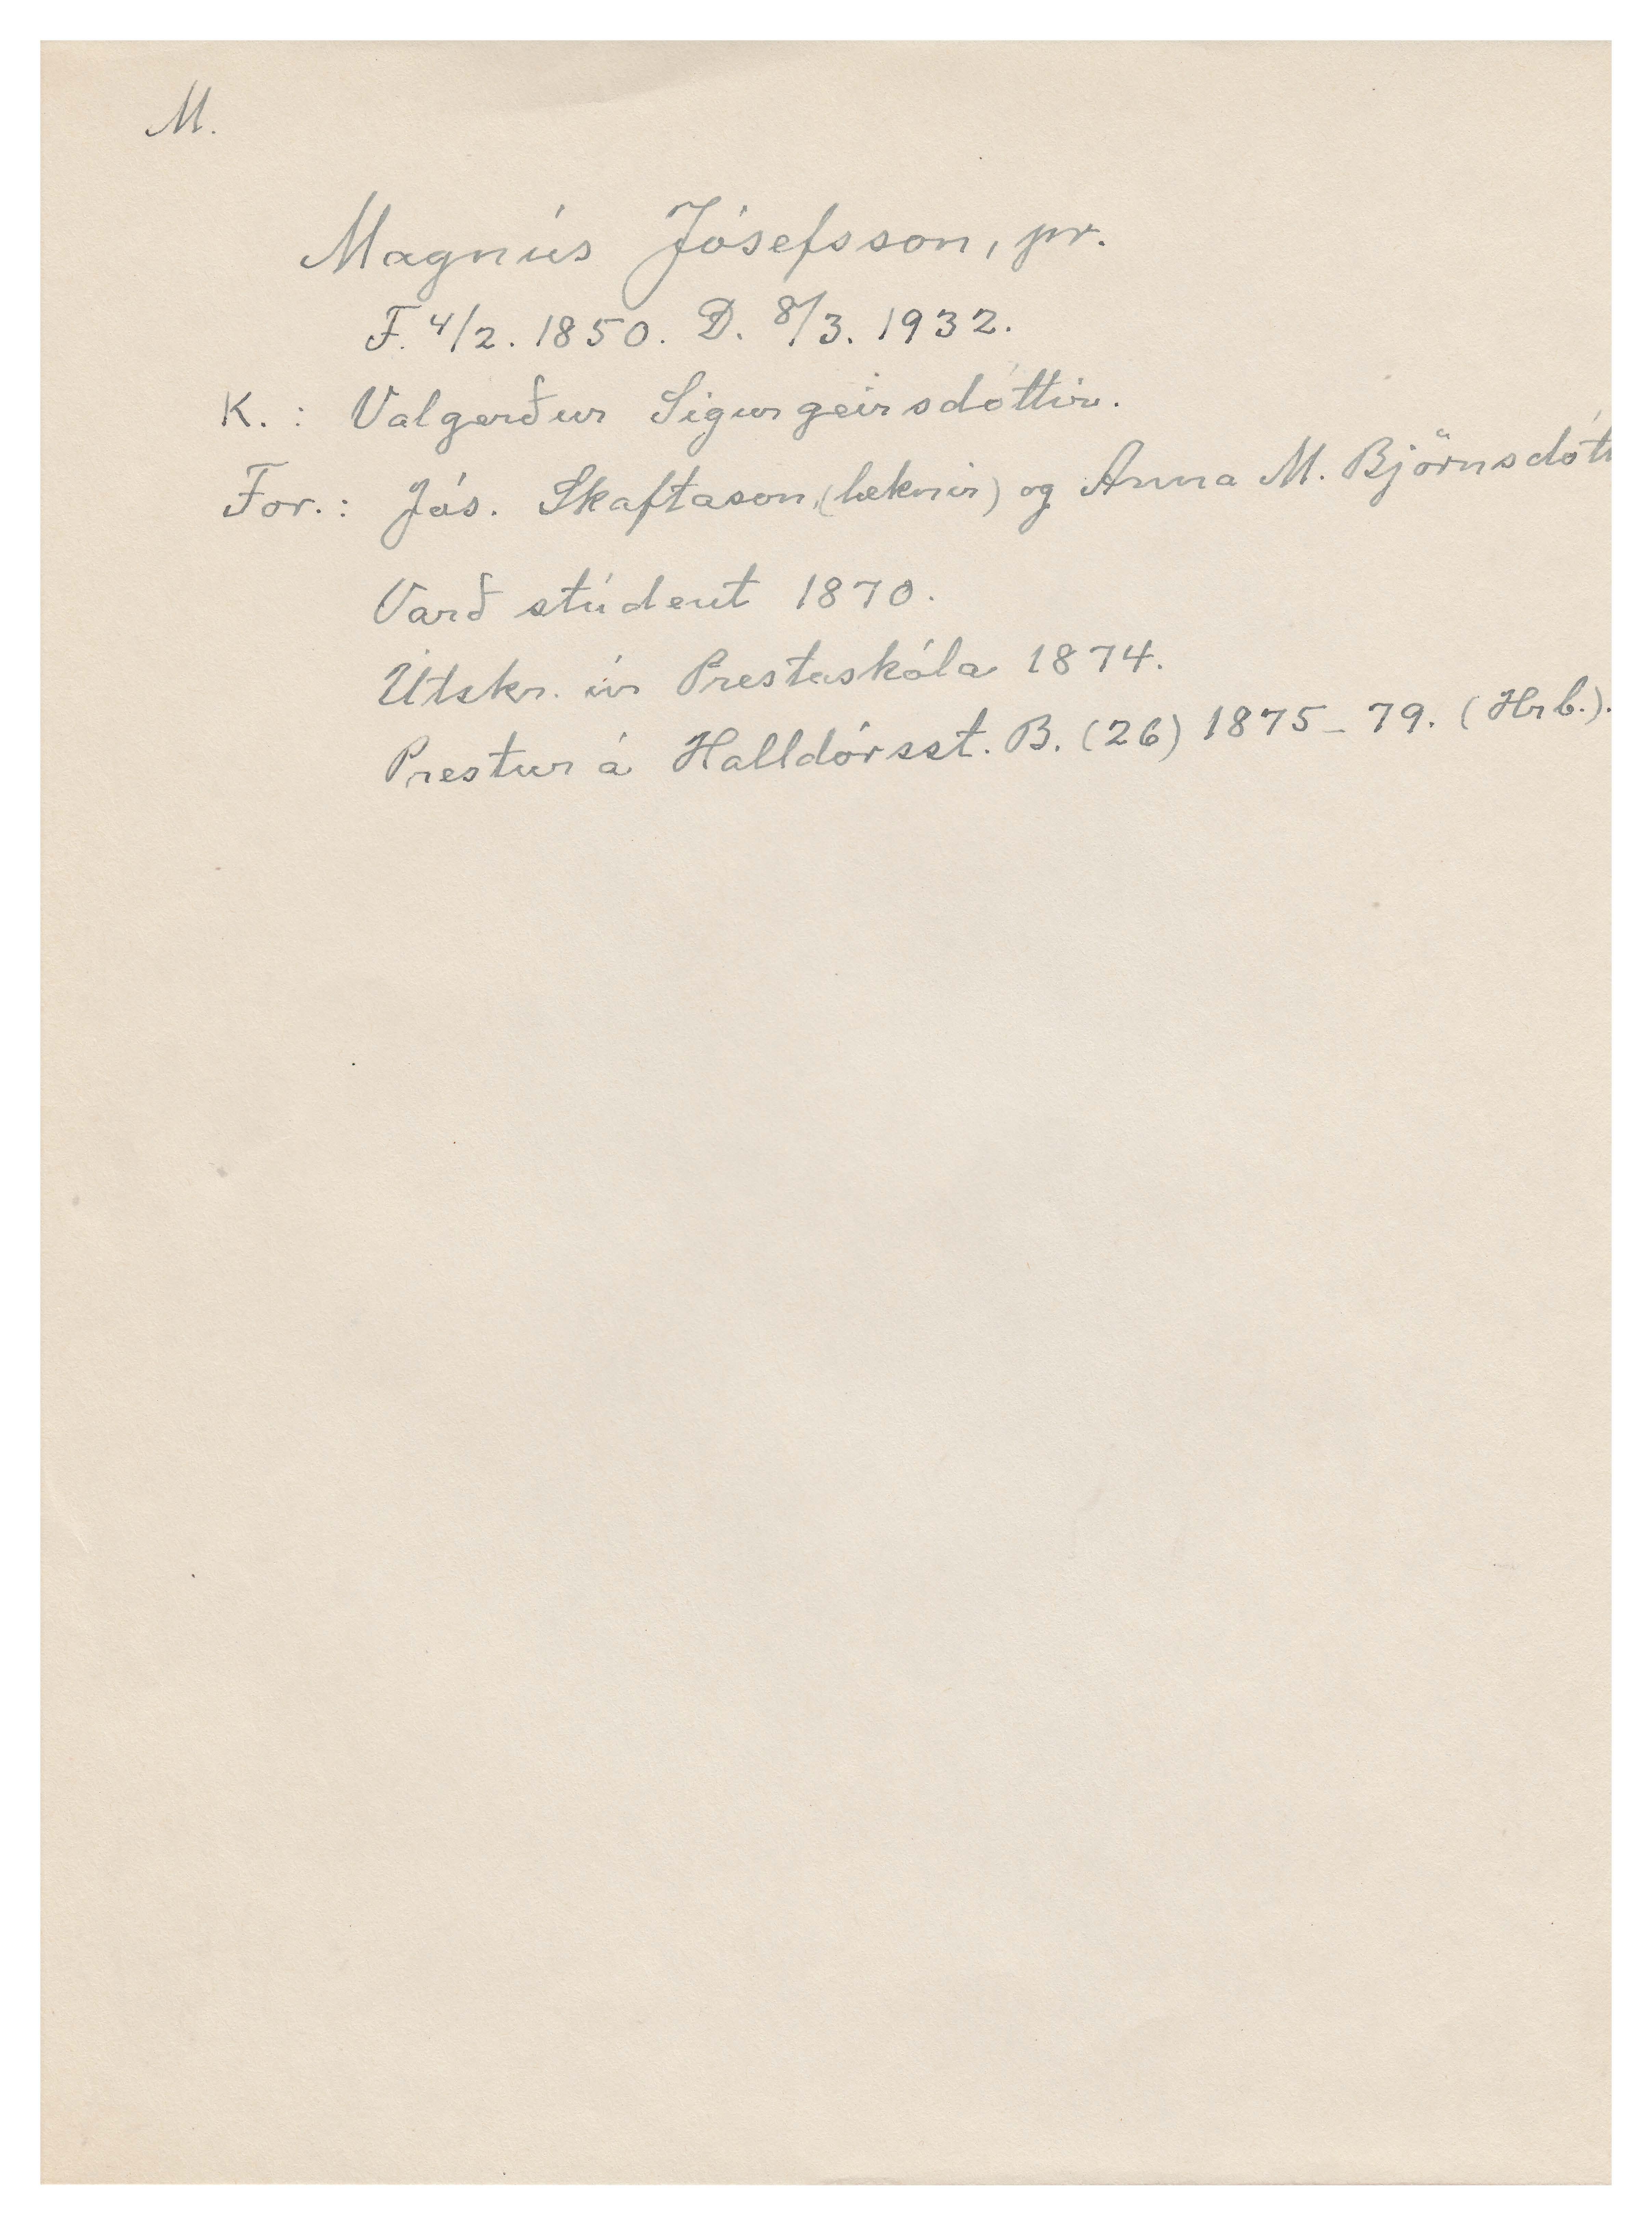 M.
Magnús Jósefsson, pr.
F. 4/2. 1850. D. 8/3. 1932.
K. : Valgerður Sigurgeirsdóttir.
For. : Jós. Skaftason, (læknir) og Anna M. Björnsdótt
Varð stúdent 1870.
Útskr. úr Prestaskóla 1874.
Prestur á Halldórsst. B. (26) 1875-79. (Hrb.).